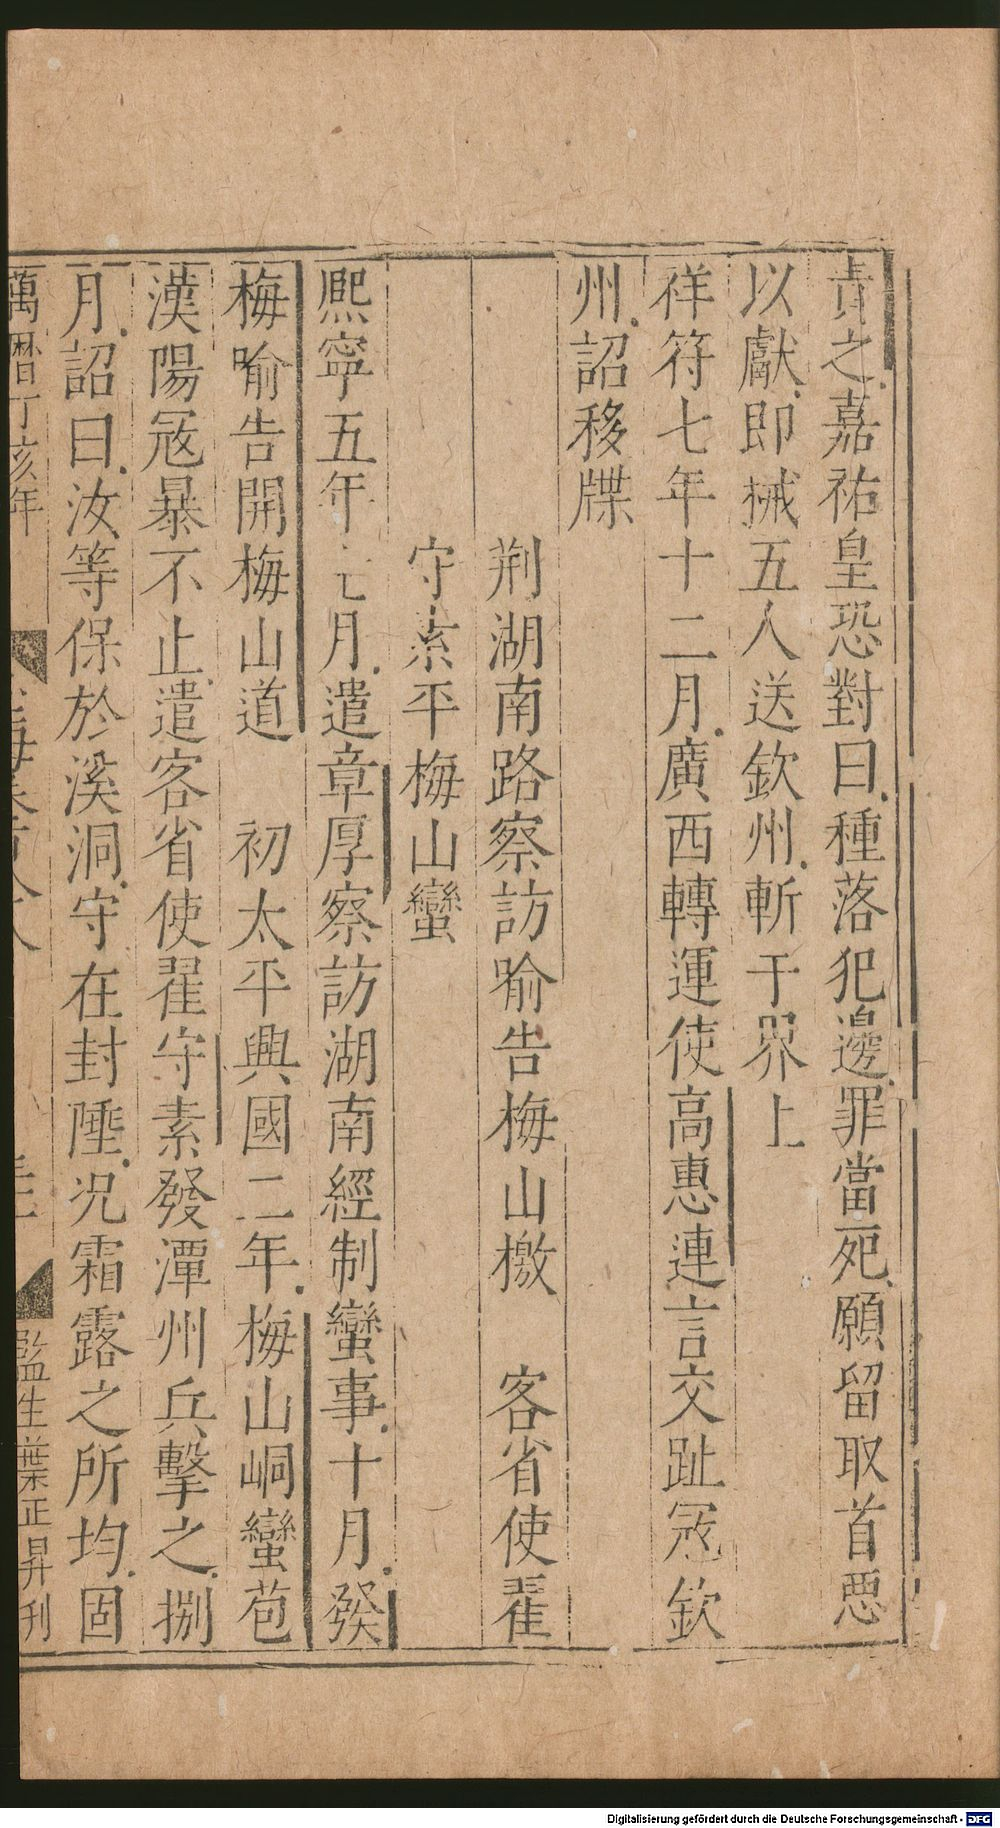 責之嘉祐皇恐對曰種落犯邊罪當死願留取首惡
以獻即械五人送欽州斬于界上
祥符七年十二月廣西轉運使高惠連言交趾冦欽
州詔移牒
荆湖南路察訪喻告梅山檄　客省使翟
守素平梅山蠻
熙寧五年七月遣章厚察訪湖南經制蠻事十月發
梅喻告開梅山道　初太平興國二年梅山峒蠻苞
漢陽冦暴不止遣客省使翟守素發潭州兵擊之捌
月詔曰汝等保於溪洞守在封陲况霜露之所均固
萬曆丁亥年
玉海卷百八十八
監生葉正昇刊
Digitalisierung gefördert durch die Deutsche Forschungsgemeinschaft - DFG